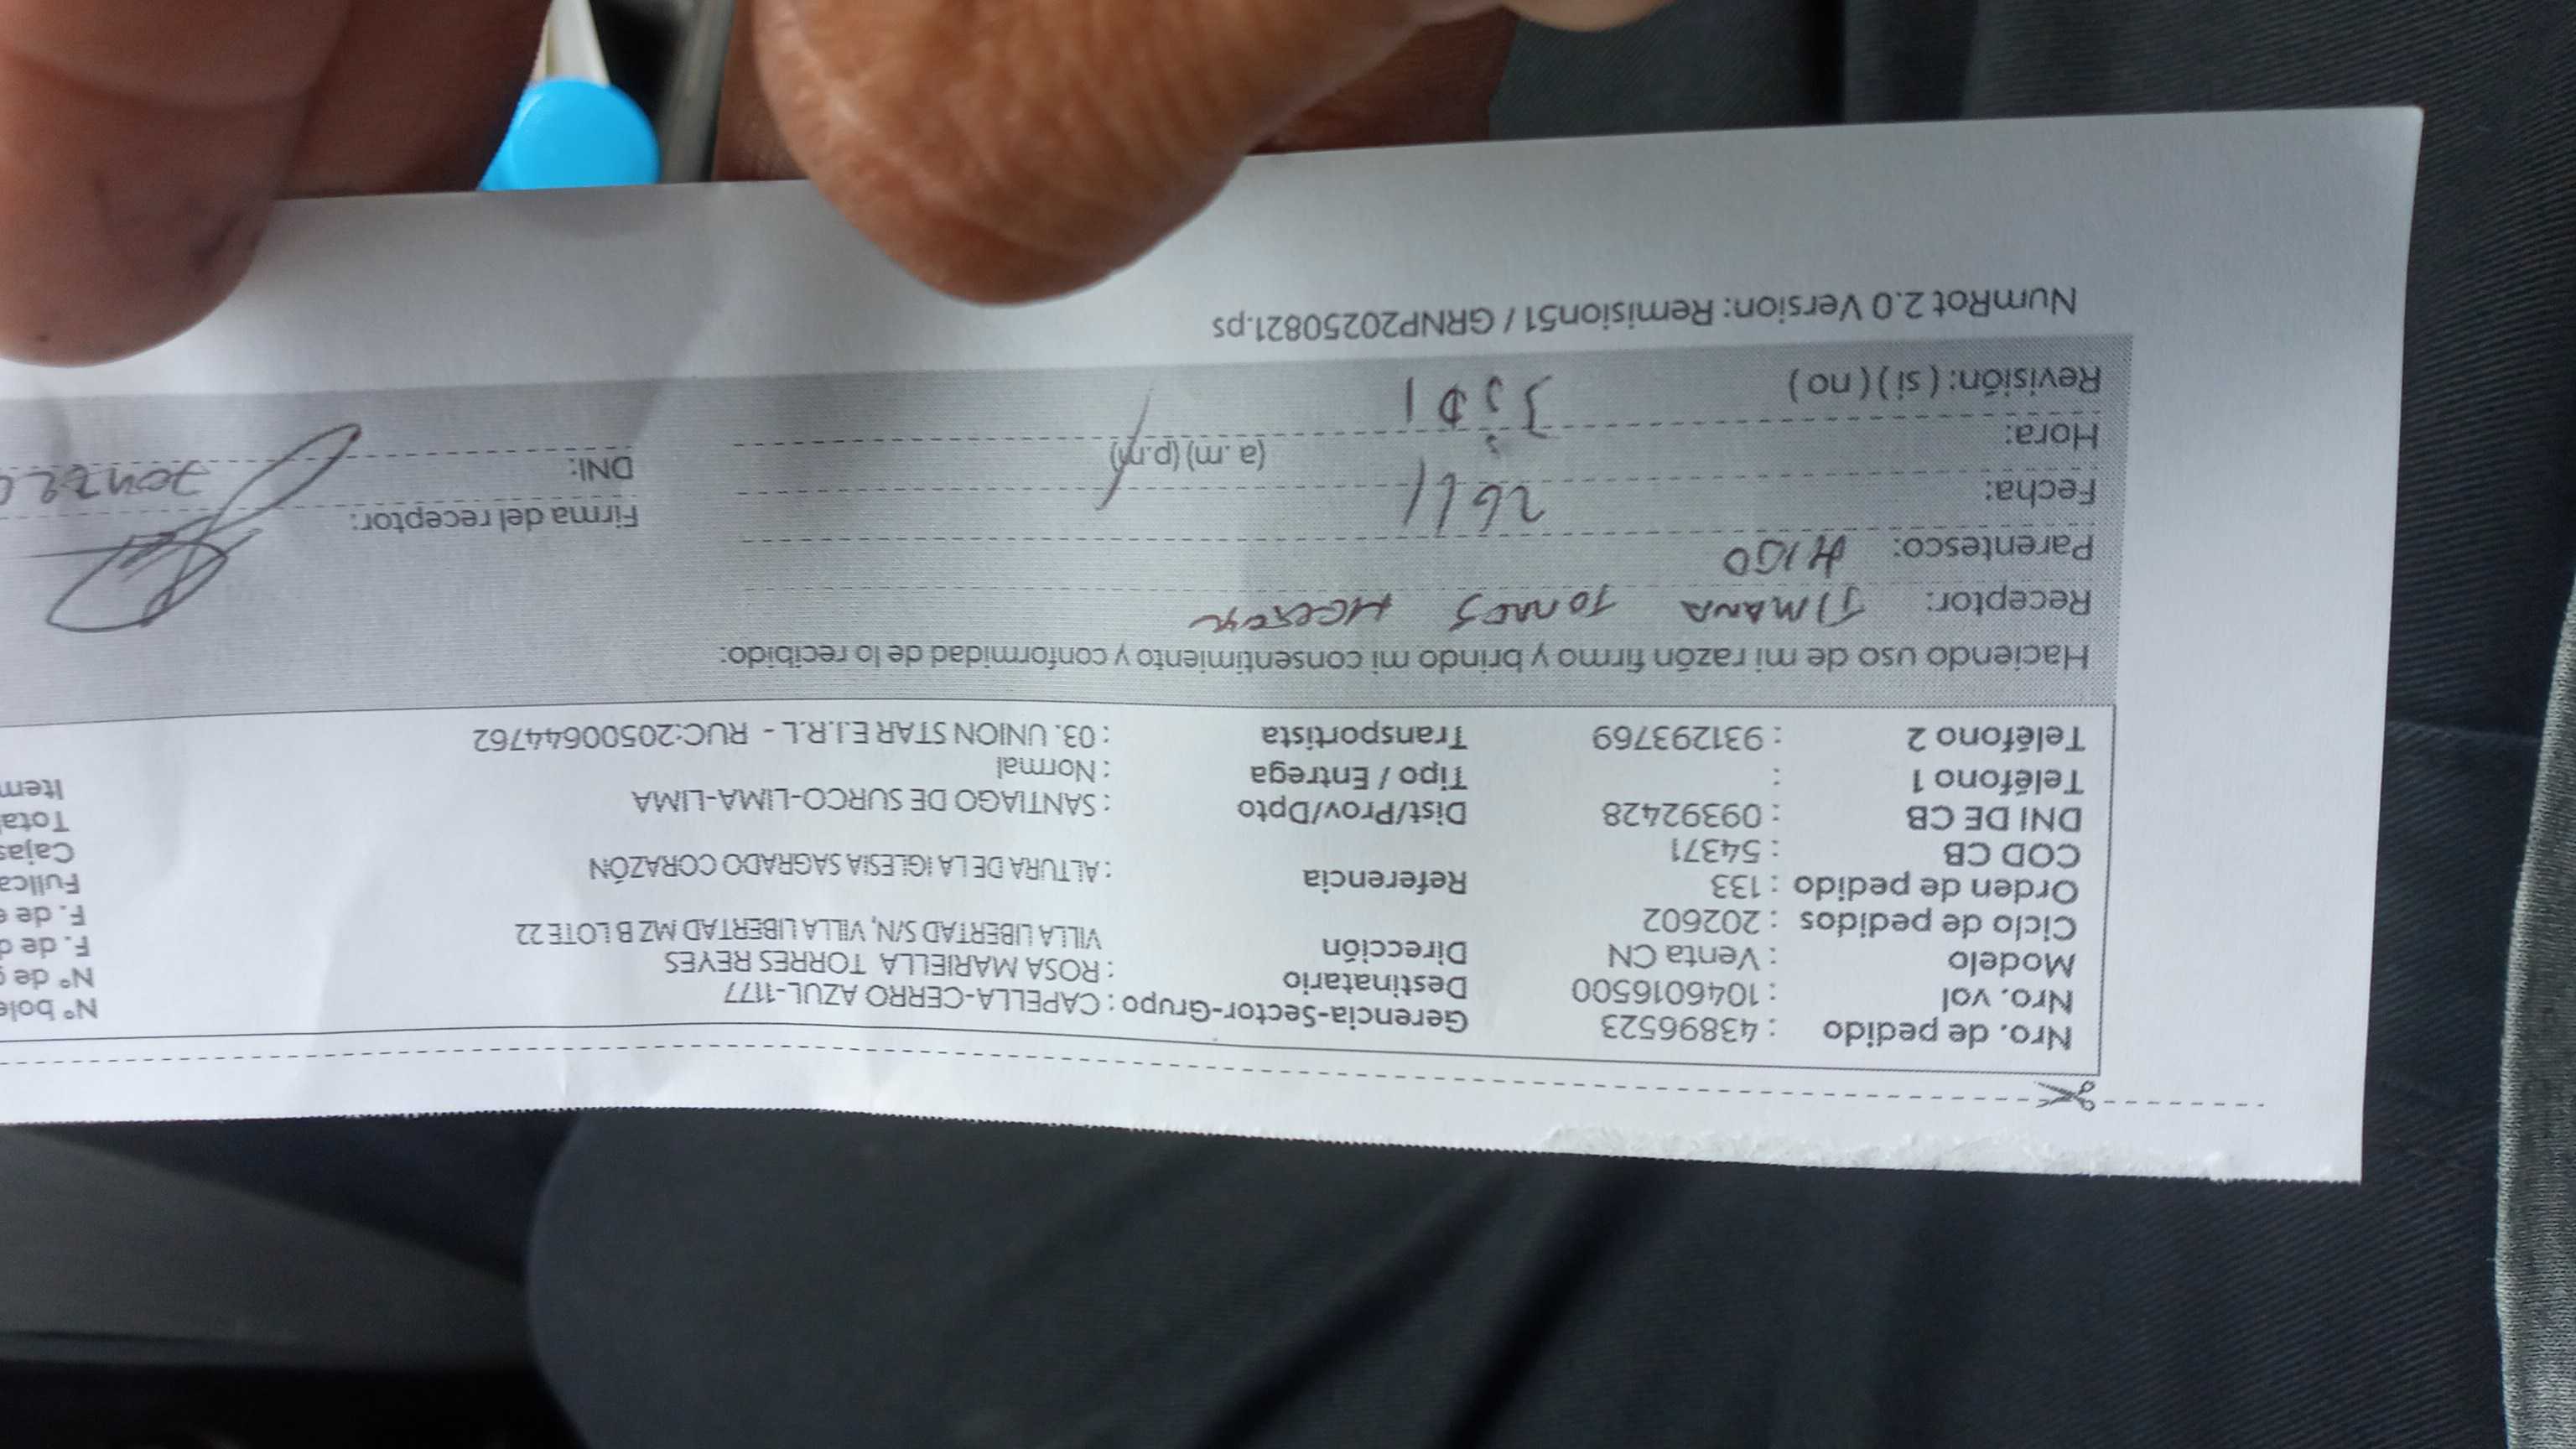 Nro. de pedido : 43896523
Nro. vol : 1046016500
Modelo : Venta CN
Ciclo de pedidos : 202602
Orden de pedido : 133
COD CB : 54371
DNI DE CB : 09392428
Teléfono 1 :
Teléfono 2 : 931293769
Gerencia-Sector-Grupo : CAPELLA-CERRO AZUL-1177
Destinatario : ROSA MARIELLA TORRES REYES
Dirección VILLA LIBERTAD S/N, VILLA LIBERTAD MZ B LOTE 22
Referencia : ALTURA DE LA IGLESIA SAGRADO CORAZÓN
Dist/Prov/Dpto : SANTIAGO DE SURCO-LIMA-LIMA
Tipo / Entrega : Normal
Transportista : 03. UNION STAR E.I.R.L - RUC:20500644762
Nº bole
Nº de
F. de
F. de
Fullca
Cajas
Tota
Item
Haciendo uso de mi razón firmo y brindo mi consentimiento y conformidad de lo recibido:
Receptor:
Parentesco: HIJO
Fecha: 26 11
Hora: (a.m) (p.m)
Revisión: ( si ) ( no )
Firma del receptor:
DNI:
NumRot 2.0 Version: Remision51 / GRNP20250821.ps